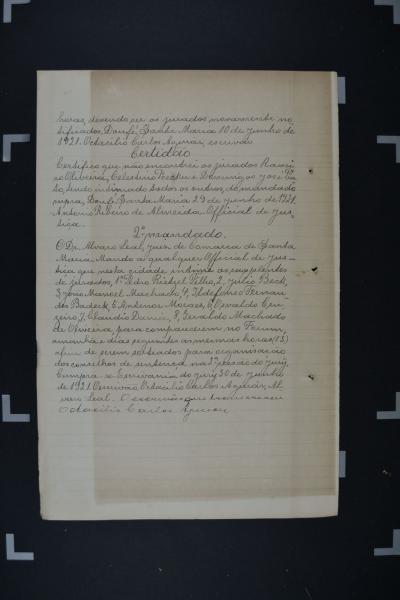 horas, devendo ser os jurados novamente no
tificados. Dou fé. Santa Maria 10 de junho de
1921. Octacilio Carlos Aymar, escrivão
Certidão
Certifico que não encontrei os jurados
Oliveira, Celestino e Domingos José
tendo intimado todos os outros, do mandado
supra, Dou fé. Santa Maria 29 de junho de 1921.
Antonio Ribeiro de Almeida Official de jus-
tiça.
2º mandado.
O Dr. Alvaro Leal, juiz de Comarca de Santa
Maria. Mando a qualquer Official de jus-
tiça que nesta cidade intime os supplentes
de jurados, 1º Pedro Filho, 2, Julio Beck,
3, João Manoel Machado, 4, Ildefonso Fernan
des Badeck, 5, Antenor Moraes, 6, Osvaldo Cru-
zeiro, 7, Claudio Dania, 8, Geraldo Machado
de Oliveira, para comparecerem no Forum,
amanhã e dias seguintes as mesmas horas, (13)
afim de serem sorteados para organisação
dos conselhos de sentença na sessão do jury.
Cumpra-se Escrivania do jury 30 de junho
de 1921. O escrivão Octacilio Carlos Aymar, Al
varo Leal. O escrivão que transcreveu
Octacilio Carlos Aymar